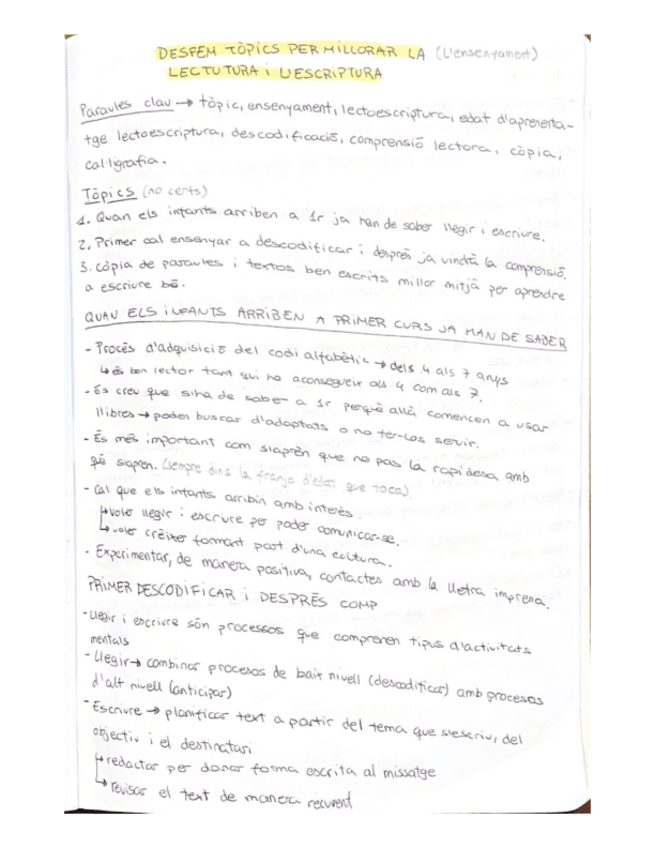 DESFEM TÒPICS PER MILLORAR LA (L'ensenyament)
LECTUTURA i L'ESCRIPTURA
Paraules clau → tòpic, ensenyament, lectoescriptura, edat d'aprenenta-
tge lectoescriptura, descodificació, comprensió lectora, còpia,
cal·ligrafia.
Tòpics (no certs)
1. Quan els infants arriben a 1r ja han de saber llegir i escriure.
2. Primer cal ensenyar a descodificar i després ja vindrà la comprensió.
3. còpia de paraules i textos ben escrits millor mitjà per aprendre
a escriure bé.
QUAN ELS INFANTS ARRIBEN A PRIMER CURS JA HAN DE SABER
- Procés d'adquisició del codi alfabètic → dels 4 als 7 anys
↳ és bon lector tant qui ho aconsegueix als 4 com als 7.
- Es creu que s'ha de saber a 1r perquè allà comencen a usar
llibres → poden buscar d'adaptats o no fer-los servir.
- És més important com s'aprèn que no pas la rapidesa amb
què s'aprèn. (sempre dins la franja d'edat que toca)
- Cal que els infants arribin amb interès.
↳ voler llegir i escriure per poder comunicar-se.
↳ voler créixer formant part d'una cultura.
- Experimentar, de manera positiva, contactes amb la lletra impresa.
PRIMER DESCODIFICAR i DESPRÉS COMP
- Llegir i escriure són processos que comprenen tipus d'activitats
mentals
- Llegir → combinar procesos de baix nivell (descodificar) amb procesos
d'alt nivell (anticipar)
- Escriure → planificar text a partir del tema que s'escriu, del
objectiu i el destinatari
↳ redactar per donar forma escrita al missatge
↳ revisar el text de manera recurent